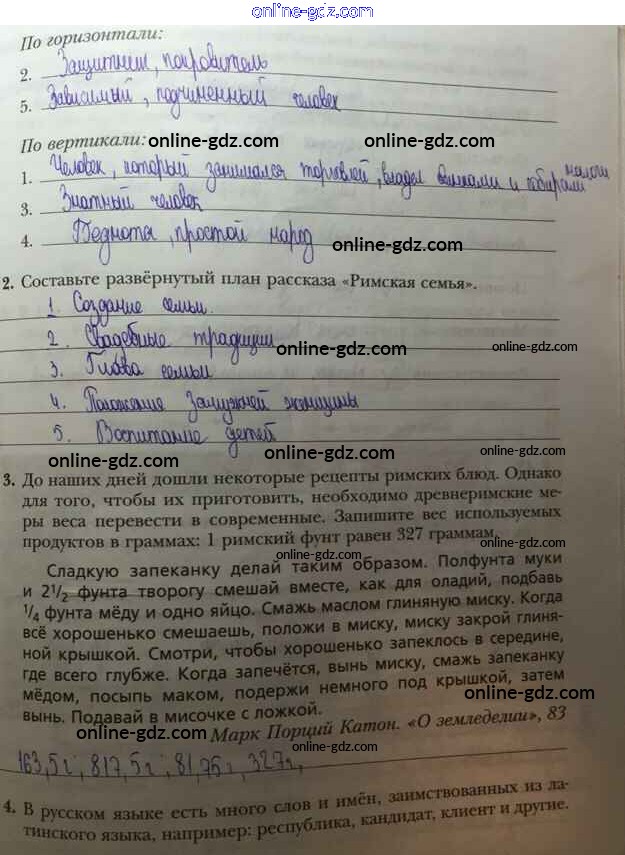 online-gdz.com
По горизонтали:
2. Защитник, покровитель
5. Зависимый, подчиненный человек
По вертикали:
online-gdz.com online-gdz.com
1. Человек, который занимался торговлей, владел банками и собирали налоги
3. Знатный человек
4. Беднота, простой народ
online-gdz.com
2. Составьте развёрнутый план рассказа «Римская семья».
1. Создание семьи.
2. Свадебные традиции
online-gdz.com online-gdz.com
3. Глава семьи
4. Положение замужней женщины
5. Воспитание детей
online-gdz.com online-gdz.com
3. До наших дней дошли некоторые рецепты римских блюд. Однако
для того, чтобы их приготовить, необходимо древнеримские ме-
ры веса перевести в современные. Запишите вес используемых
продуктов в граммах: 1 римский фунт равен 327 граммам.
online-gdz.com
Сладкую запеканку делай таким образом. Полфунта муки
и 2 1/2 фунта творогу смешай вместе, как для оладий, подбавь
1/4 фунта мёду и одно яйцо. Смажь маслом глиняную миску. Когда
всё хорошенько смешаешь, положи в миску, миску закрой глиня-
ной крышкой. Смотри, чтобы хорошенько запеклось в середине,
где всего глубже. Когда запечётся, вынь миску, смажь запеканку
мёдом, посыпь маком, подержи немного под крышкой, затем
online-gdz.com
вынь. Подавай в мисочке с ложкой.
Марк Порций Катон. «О земледелии», 83
online-gdz.com
163,5г; 817,5г; 81,75г; 327г,
4. В русском языке есть много слов и имён, заимствованных из ла-
тинского языка, например: республика, кандидат, клиент и другие.